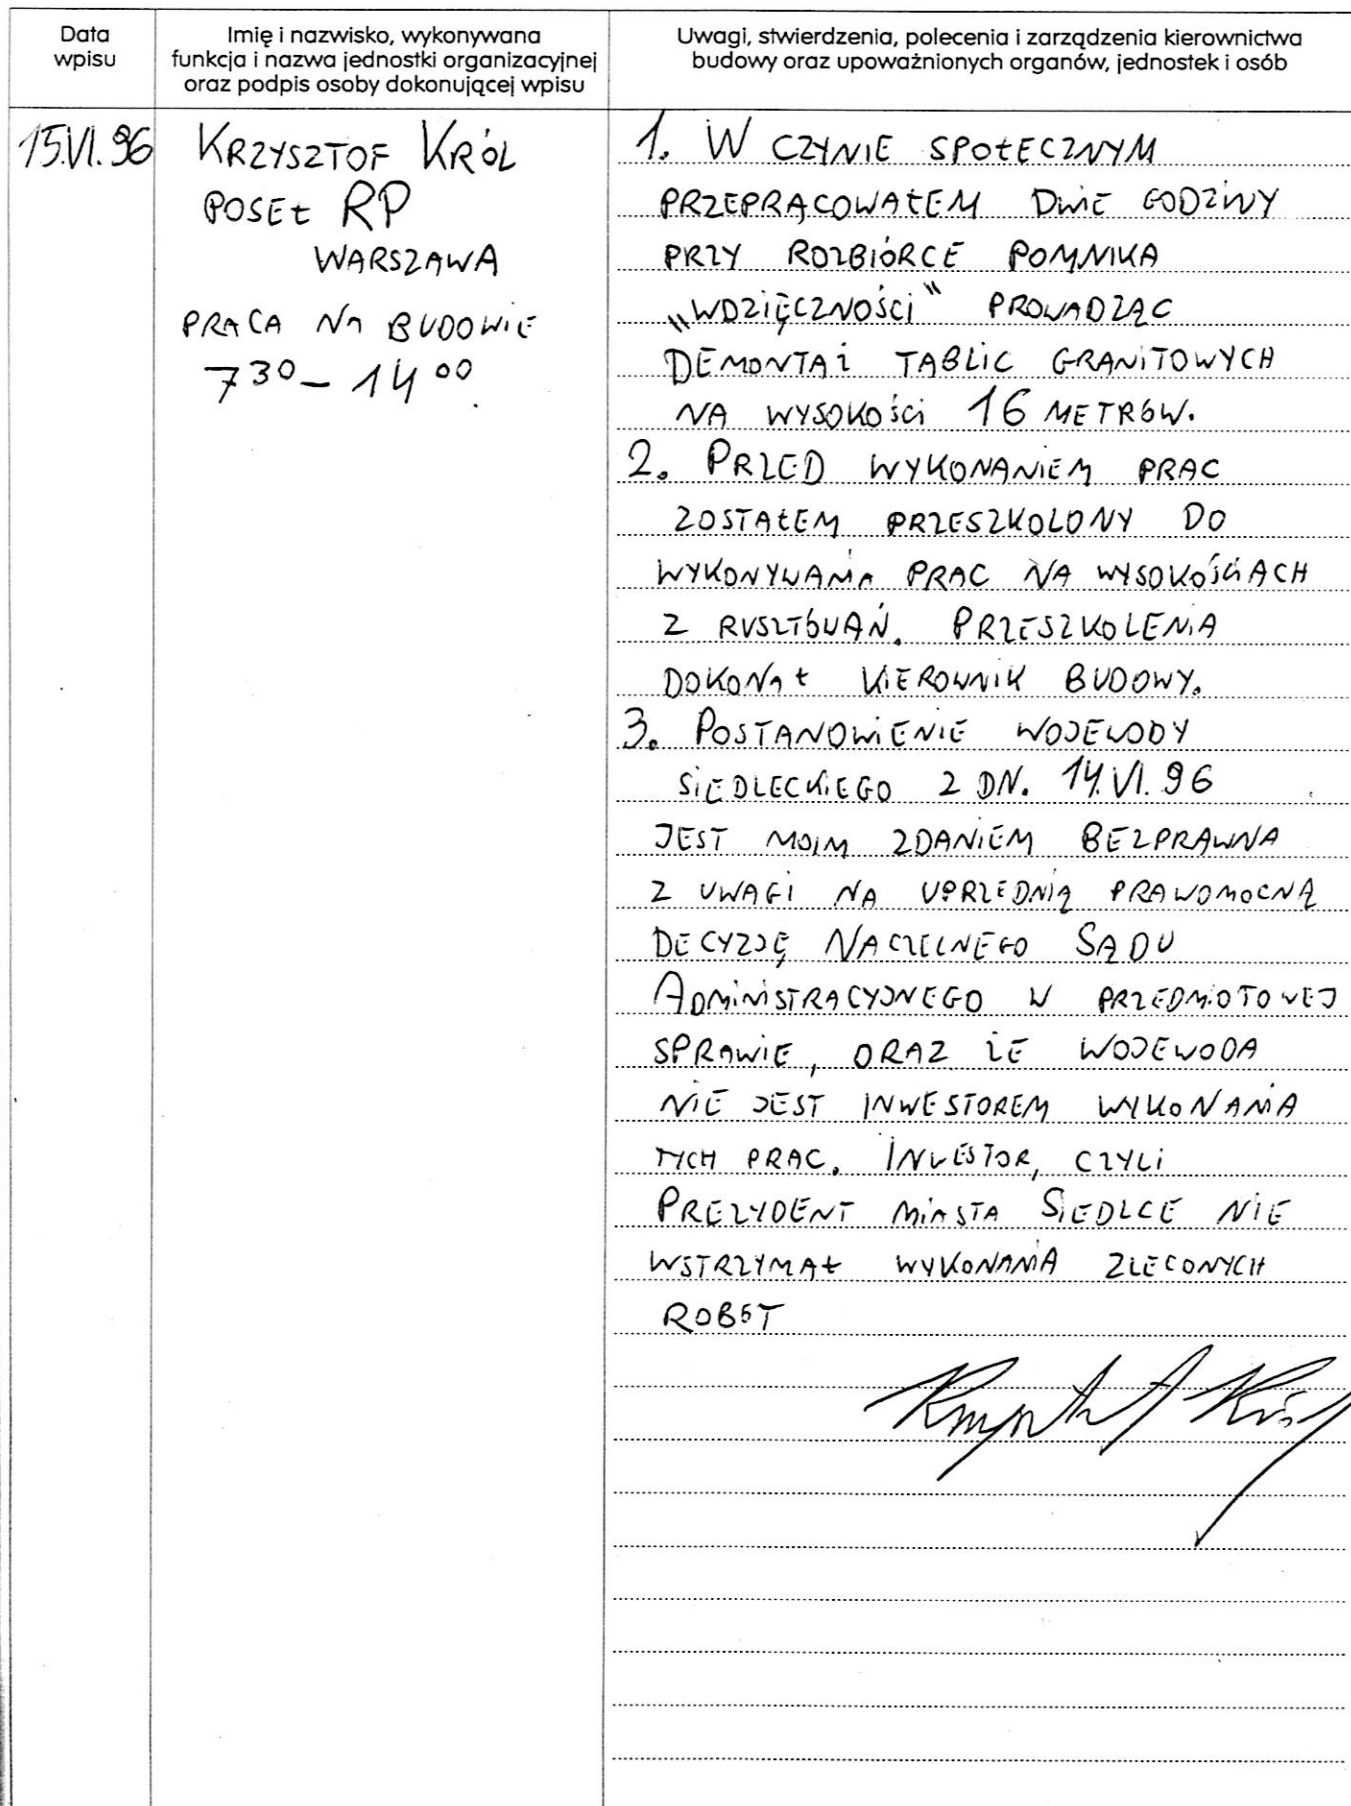 Data
wpisu
Imię i nazwisko, wykonywana
funkcja i nazwa jednostki organizacyjnej
oraz podpis osoby dokonującej wpisu
Uwagi, stwierdzenia, polecenia i zarządzenia kierownictwa
budowy oraz upoważnionych organów, jednostek i osób
15.VI.96
KRZYSZTOF KRÓL
POSEŁ RP
WARSZAWA
PRACA NA BUDOWIE
7 30 – 14 00.
1. W CZYNIE SPOŁECZNYM
PRZEPRACOWAŁEM DWIE GODZINY
PRZY ROZBIÓRCE POMNIKA
"WDZIĘCZNOŚCI" PROWADZĄC
DEMONTAŻ TABLIC GRANITOWYCH
NA WYSOKOŚCI 16 METRÓW.
2. PRZED WYKONANIEM PRAC
ZOSTAŁEM PRZESZKOLONY DO
WYKONYWANIA PRAC NA WYSOKOŚCIACH
Z RUSZTÓWAŃ. PRZESZKOLENIA
DOKONAŁ KIEROWNIK BUDOWY.
3. POSTANOWIENIE WOJEWODY
SIEDLECKIEGO Z DN. 14.VI.96
JEST MOIM ZDANIEM BEZPRAWNA
Z UWAGI NA UPRZEDNIĄ PRAWOMOCNĄ
DECYZJĘ NACZELNEGO SĄDU
ADMINISTRACYJNEGO W PRZEDMIOTOWEJ
SPRAWIE, ORAZ ŻE WOJEWODA
NIE JEST INWESTOREM WYKONANIA
TYCH PRAC. INWESTOR, CZYLI
PREZYDENT MIASTA SIEDLCE NIE
WSTRZYMAŁ WYKONANIA ZLECONYCH
ROBÓT
Krzysztof Król